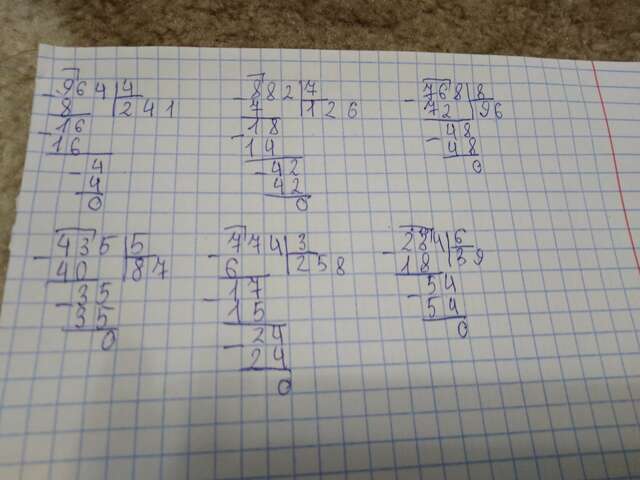 964 4
8 241
16
16
4
4
0
882 7
7 126
18
14
42
42
0
768 8
72 96
48
48
0
435 5
40 87
35
35
0
774 3
6 258
17
15
24
24
0
234 6
18 39
54
54
0